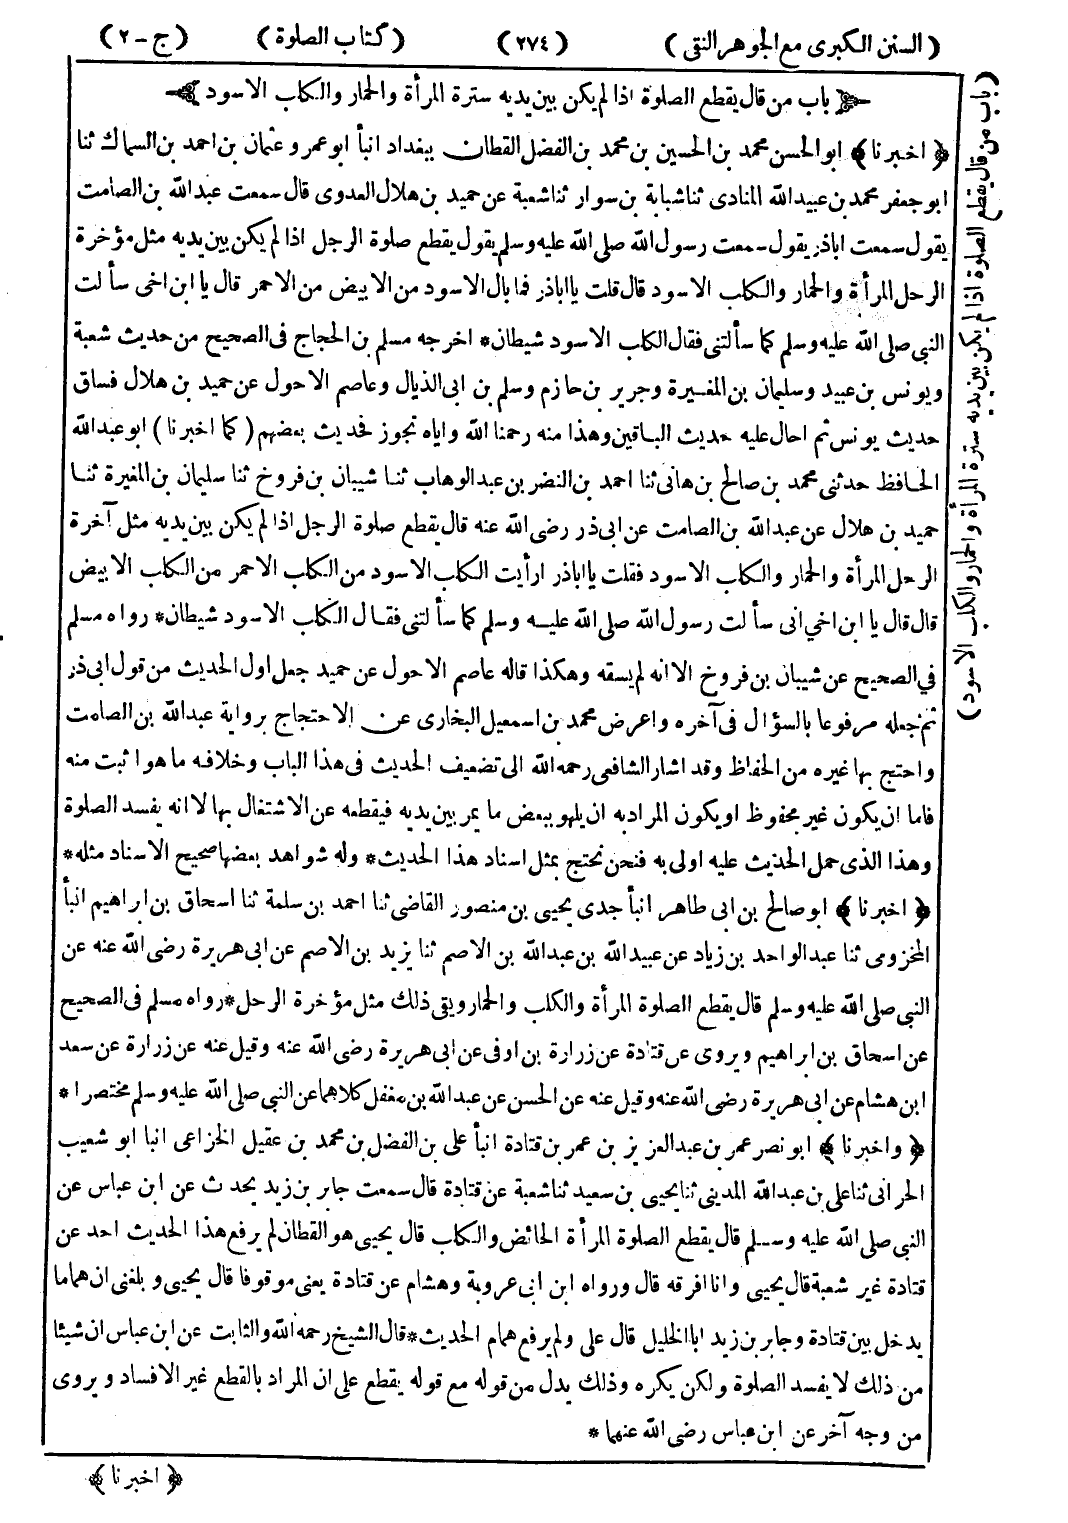 (السنن الكبرى مع الجوهر النقى) (٢٧٤) (كتاب الصلوة) (ج-٢)
باب من قال يقطع الصلوة اذا لم يكن بين يديه سترة المرأة والحمار والكلب الاسود
﴿اخبرنا﴾ ابو الحسن محمد بن الحسين بن محمد بن الفضل القطان ببغداد انبأ ابو عمرو عثمان بن احمد بن السماك ثنا
ابو جعفر محمد بن عبيد الله المنادى ثنا شبابة بن سوار ثنا شعبة عن حميد بن هلال العدوى قال سمعت عبدالله بن الصامت
يقول سمعت اباذر يقول سمعت رسول الله صلى الله عليه وسلم يقول يقطع صلوة الرجل اذا لم يكن بين يديه مثل مؤخرة
الرحل المرأة والحمار والكلب الاسود قال قلت يا اباذر فما بال الاسود من الابيض من الاحمر قال يا ابن اخى سألت
النبى صلى الله عليه وسلم كما سألتنى فقال الكلب الاسود شيطان* اخرجه مسلم بن الحجاج فى الصحيح من حديث شعبة
ويونس بن عبيد وسليمان بن المغيرة وجرير بن حازم وسلم بن ابى الذيال وعاصم الاحول عن حميد بن هلال فساق
حديث يونس ثم احال عليه حديث الباقين وهذا منه رحمنا الله واياه تجوز فحديث بعضهم (كما اخبرنا) ابو عبدالله
الحافظ حدثنى محمد بن صالح بن هانى ثنا احمد بن النضر بن عبدالوهاب ثنا شيبان بن فروخ ثنا سليمان بن المغيرة ثنا
حميد بن هلال عن عبدالله بن الصامت عن ابى ذر رضى الله عنه قال يقطع صلوة الرجل اذا لم يكن بين يديه مثل آخرة
الرحل المرأة والحمار والكلب الاسود فقلت يا اباذر ارأيت الكلب الاسود من الكلب الاحمر من الكلب الابيض
قال قال يا ابن اخى انى سألت رسول الله صلى الله عليه وسلم كما سألتنى فقال الكلب الاسود شيطان* رواه مسلم
فى الصحيح عن شيبان بن فروخ الا انه لم يسقه وهكذا قاله عاصم الاحول عن حميد جعل اول الحديث من قول ابى ذر
ثم جعله مرفوعا بالسؤال فى آخره واعرض محمد بن اسمعيل البخارى عن الاحتجاج برواية عبدالله بن الصامت
واحتج بها غيره من الحفاظ وقد اشار الشافعى رحمه الله الى تضعيف الحديث فى هذا الباب وخلافه ما هو اثبت منه
فاما ان يكون غير محفوظ او يكون المراد به ان يلهو ببعض ما يمر بين يديه فيقطعه عن الاشتغال بها لا انه يفسد الصلوة
وهذا الذى حمل الحديث عليه اولى به فنحن نحتج بمثل اسناد هذا الحديث* وله شواهد بعضها صحيح الاسناد مثله*
﴿اخبرنا﴾ ابو صالح بن ابى طاهر انبأ جدى يحيى بن منصور القاضى ثنا احمد بن سلمة ثنا اسحاق بن ابراهيم انبأ
المخزومى ثنا عبدالواحد بن زياد عن عبيد الله بن عبدالله بن الاصم ثنا يزيد بن الاصم عن ابى هريرة رضى الله عنه عن
النبى صلى الله عليه وسلم قال يقطع الصلوة المرأة والكلب والحمار ويقى ذلك مثل مؤخرة الرحل* رواه مسلم فى الصحيح
عن اسحاق بن ابراهيم ويروى عن قتادة عن زرارة بن اوفى عن ابى هريرة رضى الله عنه وقيل عنه عن زرارة عن سعد
ابن هشام عن ابى هريرة رضى الله عنه وقيل عنه عن الحسن عن عبدالله بن مغفل كلاهما عن النبى صلى الله عليه وسلم مختصرا*
﴿واخبرنا﴾ ابو نصر عمر بن عبدالعزيز بن عمر بن قتادة انبأ على بن الفضل بن محمد بن عقيل الخزاعى انبا ابو شعيب
الحرانى ثنا على بن عبدالله المدينى ثنا يحيى بن سعيد ثنا شعبة عن قتادة قال سمعت جابر بن زيد يحدث عن ابن عباس عن
النبى صلى الله عليه وسلم قال يقطع الصلوة المرأة الحائض والكلب قال يحيى هو القطان لم يرفع هذا الحديث احد عن
قتادة غير شعبة قال يحيى وانا افرقه قال ورواه ابن ابى عروبة وهشام عن قتادة يعنى موقوفا قال يحيى وبلغنى ان هماما
يدخل بين قتادة وجابر بن زيد ابا الخليل قال على ولم يرفع همام الحديث* قال الشيخ رحمه الله والثابت عن ابن عباس ان شيئا
من ذلك لا يفسد الصلوة ولكن يكره وذلك يدل من قوله مع قوله يقطع على ان المراد بالقطع غير الافساد ويروى
من وجه آخر عن ابن عباس رضى الله عنهما*
﴿اخبرنا﴾
(باب من قال يقطع الصلوة اذا لم يكن بين يديه سترة المرأة والحمار والكلب الاسود)